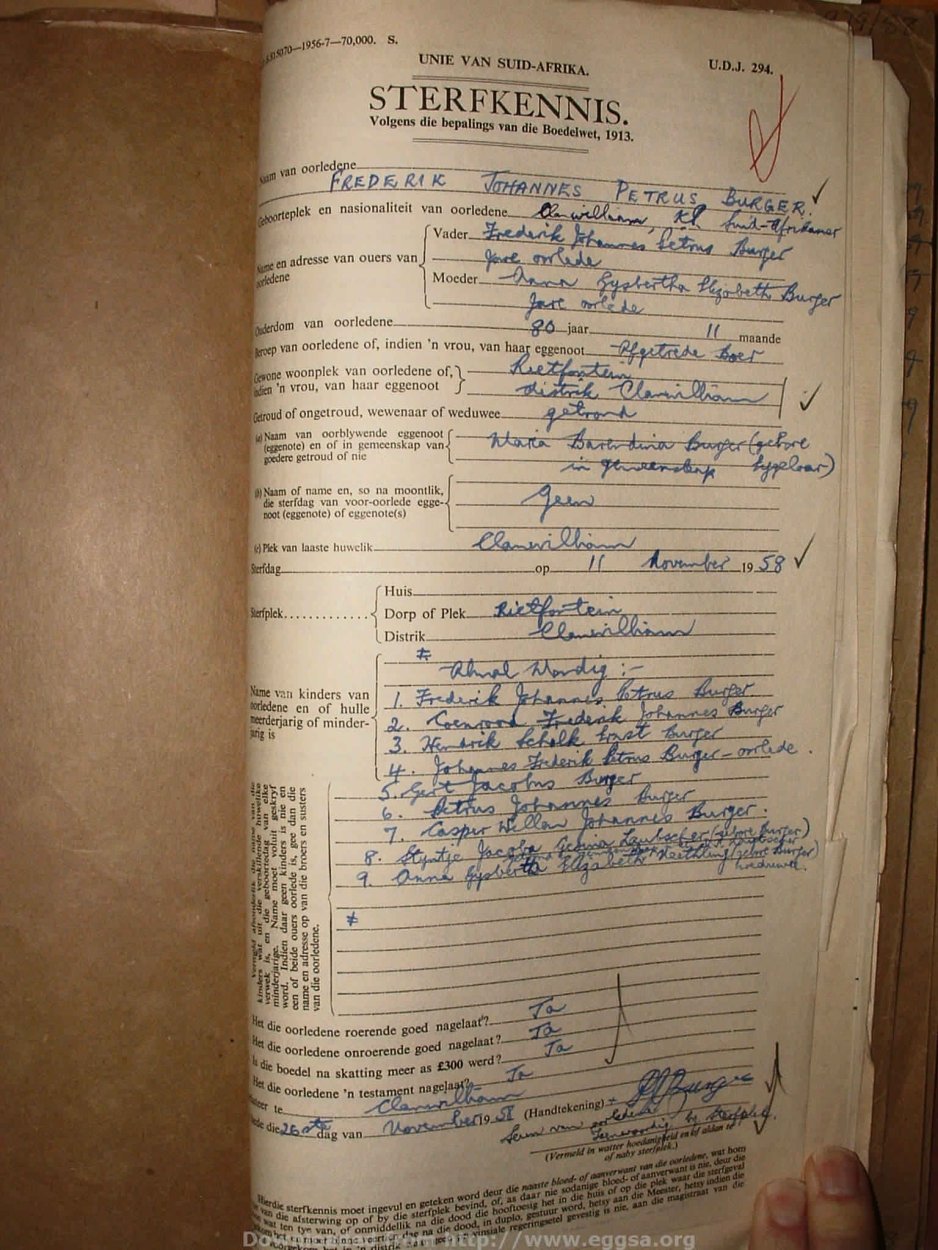 1956-7—70,000. S.
UNIE VAN SUID-AFRIKA.
U.D.J. 294.
STERFKENNIS.
Volgens die bepalings van die Boedelwet, 1913.
Naam van oorledene
FREDERIK JOHANNES PETRUS BURGER.
Geboorteplek en nasionaliteit van oorledene Clanwilliam, KP Suid-Afrikaner
Name en adresse van ouers van oorledene
Vader Frederik Johannes Petrus Burger
Jare oorlede
Moeder Anna Gysbertha Elizabeth Burger
Jare oorlede
Ouderdom van oorledene 80 jaar 11 maande
Beroep van oorledene of, indien 'n vrou, van haar eggenoot Afgetrede Boer
Gewone woonplek van oorledene of, Rietfontein
indien 'n vrou, van haar eggenoot distrik Clanwilliam
Getroud of ongetroud, wewenaar of weduwee getroud
(a) Naam van oorblywende eggenoot Maria Barendina Burger (gebore
(eggenote) en of in gemeenskap van
goedere getroud of nie in gemeenskap
(b) Naam of name en, so na moontlik,
die sterfdag van voor-oorlede egge- Geen
noot (eggenote) of eggenote(s)
(c) Plek van laaste huwelik Clanwilliam
Sterfdag op 11 November 1958
Sterfplek
Huis
Dorp of Plek Rietfontein
Distrik Clanwilliam
Almal Mondig :-
Name van kinders van
oorledene en of hulle
meerderjarig of minder-
jarig is
1. Frederik Johannes Petrus Burger
2. Coenrood Frederik Johannes Burger
3. Hendrik Schalk Burger
4. Johannes Frederik Petrus Burger - oorlede.
5. Gert Jacobus Burger
6. Petrus Johannes Burger
7. Casper Willem Johannes Burger.
8. Jacoba (gebore Burger)
9. Anna Gysbertha Elizabeth (gebore Burger)
weduwee.
Vermeld afsonderlik die name van die
kinders wat uit die verskillende huwelike
verwek is, en die geboortedag van elke
minderjarige. Name moet voluit geskryf
word. Indien daar geen kinders is nie en
een of beide ouers oorlede is, gee dan die
name en adresse op van die broers en susters
van die oorledene.
Het die oorledene roerende goed nagelaat? Ja
Het die oorledene onroerende goed nagelaat? Ja
Is die boedel na skatting meer as £300 werd? Ja
Het die oorledene 'n testament nagelaat? Ja
te Clanwilliam
die 26ste dag van November 1958 (Handtekening)
Seun van oorledene
Teenwoordig by sterfplek.
(Vermeld in watter hoedanigheid en of aldan te
of naby sterfplek.)
Hierdie sterfkennis moet ingevul en geteken word deur die naaste bloed- of aanverwant van die oorledene, wat hom
van die afsterwing op of by die sterfplek bevind, of, as daar nie sodanige bloed- of aanverwant is nie, deur die
wat ten tye van, of onmiddellik na die dood die hooftoesig het in die huis of op die plek waar die sterfgeval
dae na die dood, in duplo, gestuur word, hetsy aan die Meester, hetsy indien die
provinsiale regeringsetel gevestig is nie, aan die magistraat van die
http://www.eggsa.org